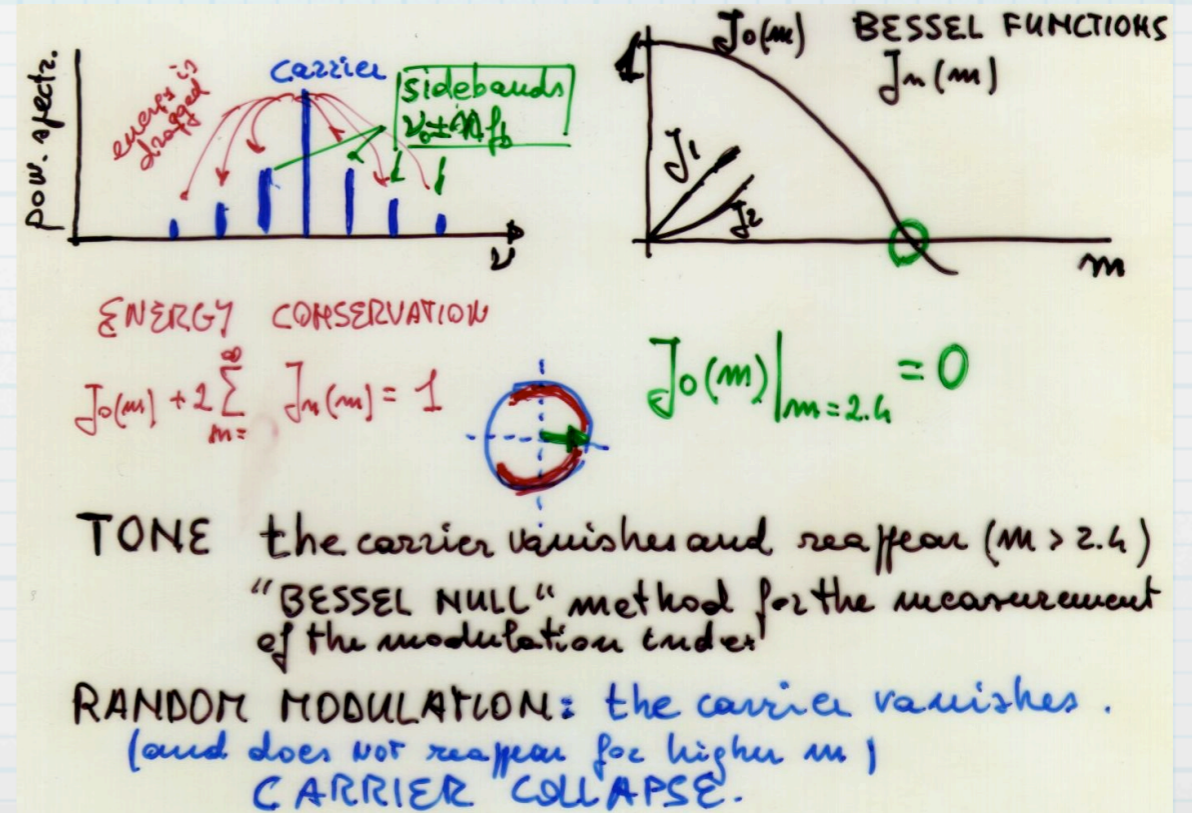 pow. spectr.
energy is
dragged
carrier
sidebands
ν₀ ± n f_b
ν
1
J₀(m)
J₁
J₂
BESSEL FUNCTIONS
Jₙ(m)
m
ENERGY CONSERVATION
J₀(m) + 2 ∑ Jₙ(m) = 1
∞
n=
J₀(m)|ₘ₌₂.₄ = 0
TONE the carrier vanishes and reappear (m > 2.4)
"BESSEL NULL" method for the measurement
of the modulation index
RANDOM MODULATION: the carrier vanishes.
(and does NOT reappear for higher m)
CARRIER COLLAPSE.